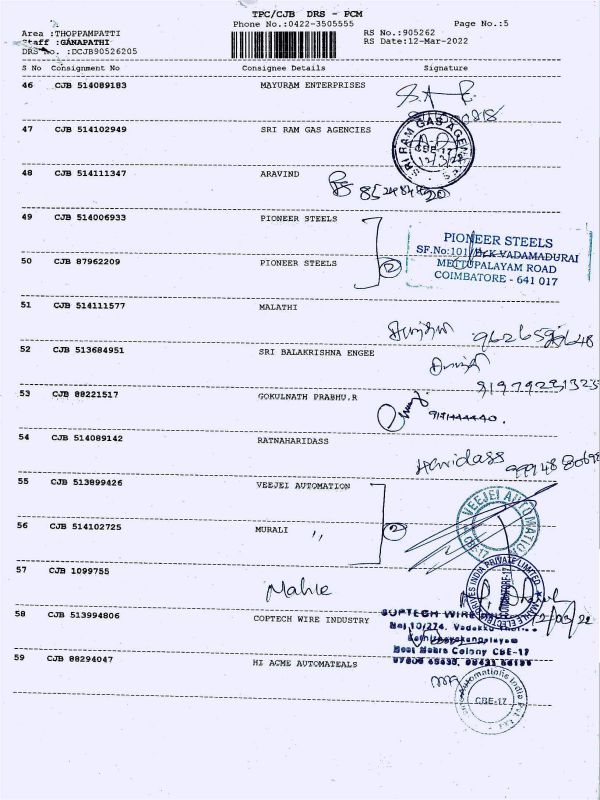 TPC/CJB DRS - PCM
Phone No.:0422-3505555 Page No.:5
Area :THOPPAMPATTI RS No.:905262
Staff :GANAPATHI RS Date:12-Mar-2022
DRS No. :DCJB90526205
S No Consignment No Consignee Details Signature
46 CJB 514089183 MAYURAM ENTERPRISES
47 CJB 514102949 SRI RAM GAS AGENCIES
SRI RAM GAS AGENCIES
CBE-17
12/3/22
48 CJB 514111347 ARAVIND
49 CJB 514006933 PIONEER STEELS
PIONEER STEELS
SF.No:101/ VADAMADURAI
METTUPALAYAM ROAD
COIMBATORE - 641 017
50 CJB 87962209 PIONEER STEELS 2
51 CJB 514111577 MALATHI
52 CJB 513684951 SRI BALAKRISHNA ENGEE
53 CJB 88221517 GOKULNATH PRABHU.R
54 CJB 514089142 RATNAHARIDASS
Haridass
55 CJB 513899426 VEEJEI AUTOMATION
VEEJEI AUTOMATION
CBE-17
56 CJB 514102725 MURALI " 2
57 CJB 1099755
Mahle
12/03/22
58 CJB 513994806 COPTECH WIRE INDUSTRY
COPTECH WIRE
West Nehru Colony CBE-17
59 CJB 88294047 HI ACME AUTOMATEALS
Automations India Pvt Ltd
CBE-17